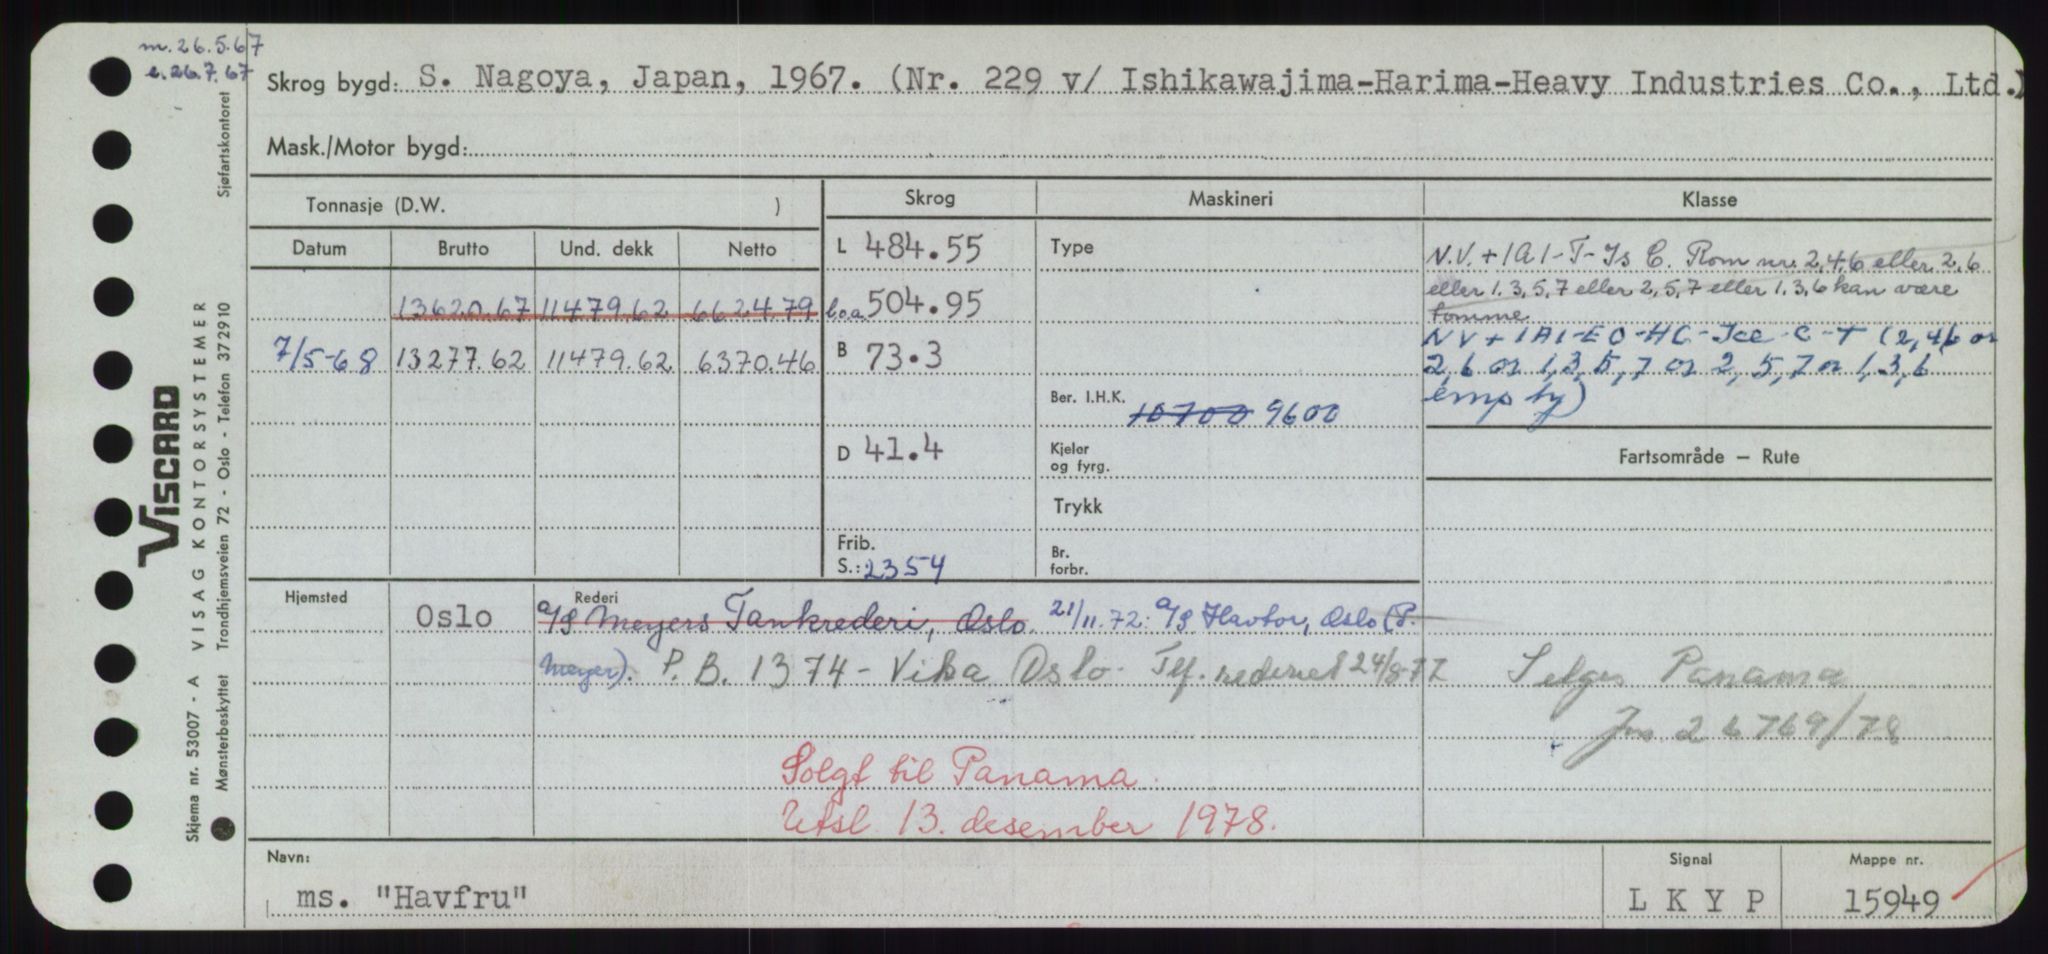 m. 26.5.67
e. 26.7.67
Skrog bygd: S. Nagoya, Japan, 1967. (Nr. 229 v/ Ishikawajima-Harima-Heavy Industries Co., Ltd.)
Mask./Motor bygd:
Tonnasje (D.W. )
Skrog
Maskineri
Klasse
Datum Brutto Und. dekk Netto
L 484.55
Type
N.V. + 1A1-T-Is C. Rom nr. 2,4,6 eller 2,6
eller 1,3,5,7 eller 2,5,7 eller 1,3,6 kan være
tomme
13620.67 11479.62 6624.79
l.o.a. 504.95
NV + 1A1-EO-HC-Ice-C-T (2,4,6 or
7/5-68 13277.62 11479.62 6370.46
B 73.3
2,6 or 1,3,5,7 or 2,5,7 or 1,3,6
empty)
Ber. I.H.K. 10700 9600
D 41.4
Kjeler
og fyrg.
Fartsområde — Rute
Trykk
Frib.
S.: 2354
Br.
forbr.
Hjemsted
Oslo
Rederi
A/S Meyers Tankrederi, Oslo. 21/11.72: A/S Havtor, Oslo (P.
Meyer). P.B. 1374 - Vika Oslo. Tlf. rederiet 24/8-77
Selges Panama
Jnr 24769/78
Solgt til Panama.
Utsl 13. desember 1978.
Navn:
ms. "Havfru"
Signal
L K Y P
Mappe nr.
15949
VISCARD
Skjema nr. 53007 - A VISAG KONTORSYSTEMER
Mønsterbeskyttet Trondhjemsveien 72 - Oslo - Telefon 372910
Sjøfartskontoret